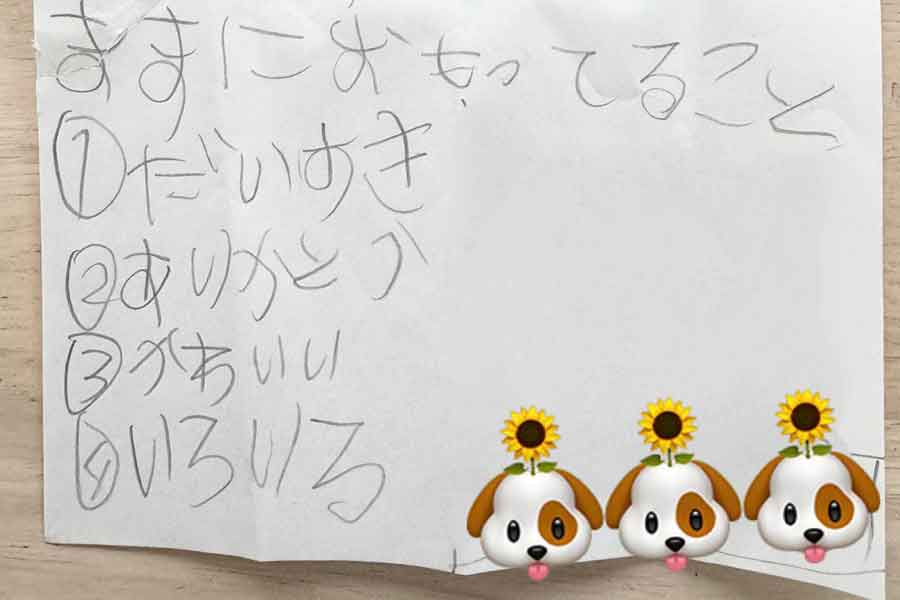 ままにおもってること
①だいすき
②ありかとう
③かわいい
④いろいる